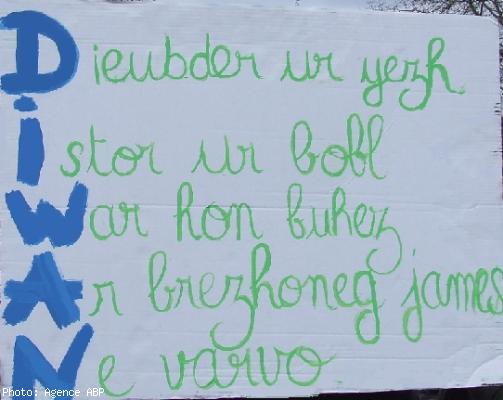 Dieubder ur yezh
Istor ur bobl
War hon buhez
Ar brezhoneg james
Ne varvo
Photo: Agence ABP